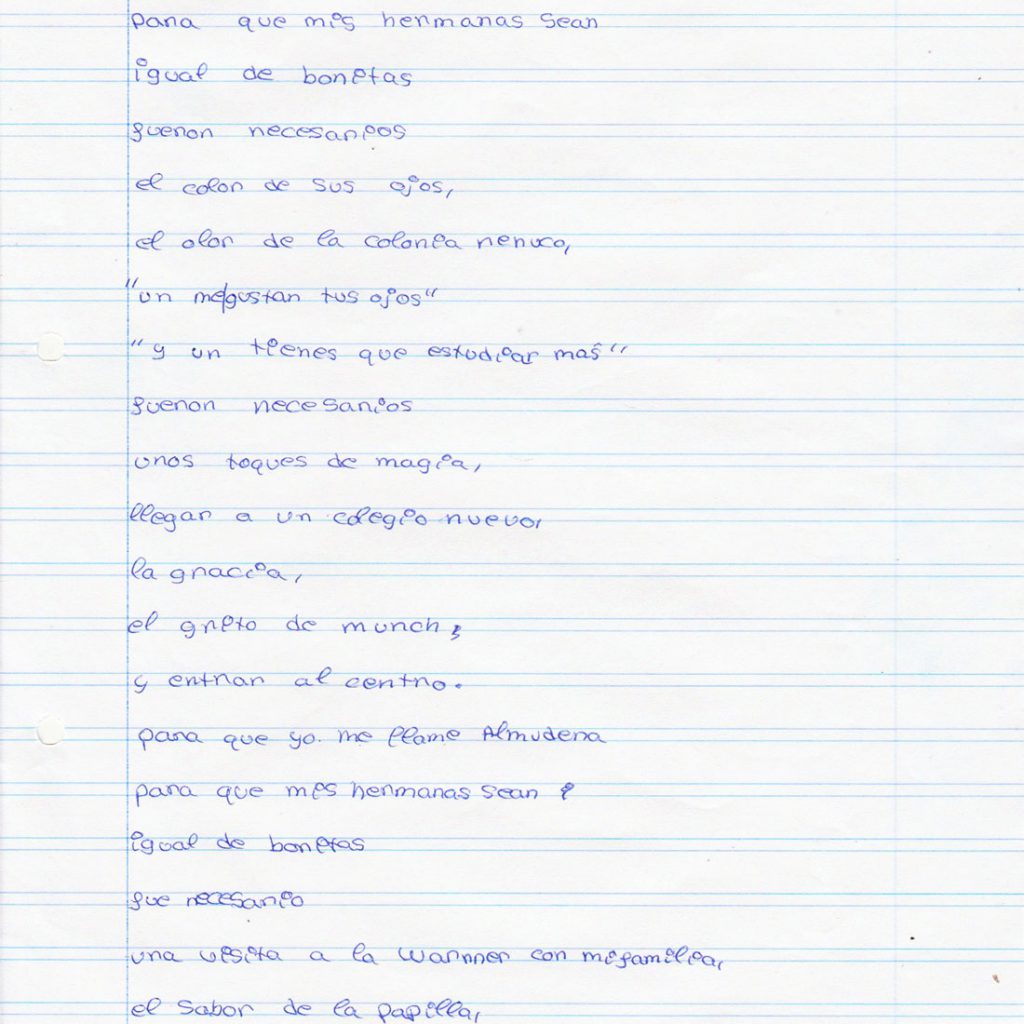 para que mis hermanas sean
igual de bonitas
fueron necesarios
el color de sus ojos,
el olor de la colonia nenuco,
"un me gustan tus ojos"
"y un tienes que estudiar mas"
fueron necesarios
unos toques de magia,
llegar a un colegio nuevo,
la gracia,
el grito de munch,
y entrar al centro.
para que yo. me llame Almudena
para que mis hermanas sean
igual de bonitas
fue necesario
una visita a la warnner con mi familia,
el sabor de la papilla,